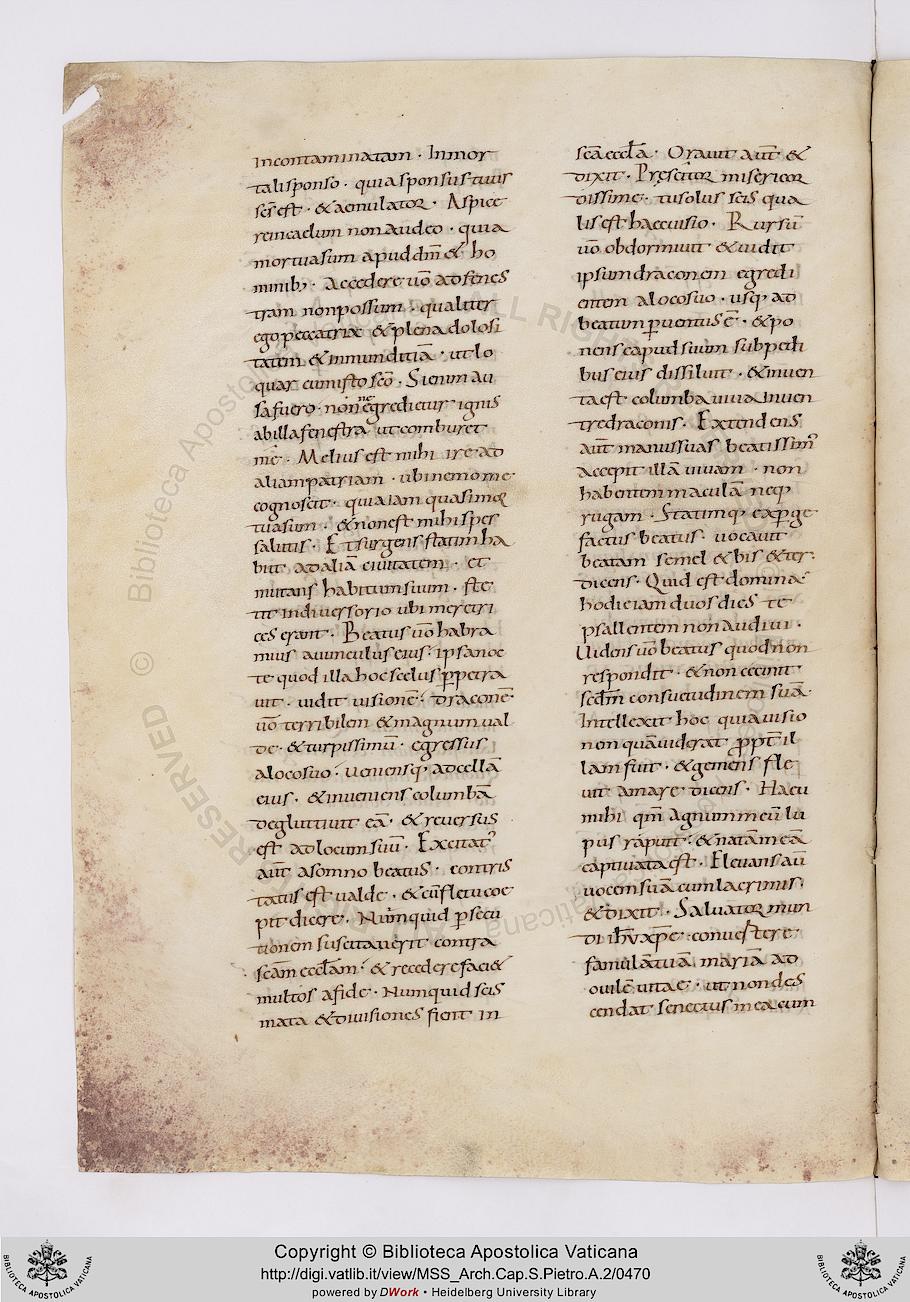 incontaminatam · Inmor
talisponso · quia sponsus tuus
scs est · & aemulator · Aspice
re in caelum non audeo · quia
mortua sum apud dm & ho
minib; · Accedere uo ad fenes
tram non possum · qualiter
ego peccatrix & plena dolosi
tatem & inmunditia · ut lo
quar cum isto sco · Si enim au
sa fuero · non egredietur ignis
ab illa fenestra ut comburet
me · Melius est mihi ire ad
aliam patriam · ubi nemo me
cognoscit · quia iam quasi mor
tua sum · & non est mihi spes
salutis · Et surgens statim ha
biit ad alia ciuitatem · et
mutans habitum suum · ste
tit in diuersorio ubi meretri
ces erant · Beatus uo habra
mius auunculus eius · ipsa noc
te quod illa hoc scelus ppetra
uit · uidit uisione · dracone
uo terribilem & magnum ual
de · & turpissimu · egressus
a loco suo · ueniensq; ad cella
eius · & inueniens columba
degluttiuit ea · & reuersus
est ad locum suu · Excitat
aut a somno beatus · contris
tatus est ualde · & cu fletu coe
pit dicere · Numquid psecu
tionem suscitauerit contra
scam ecclam · & recedere faci&
multos a fide · Numquid scis
mata & diuisiones fient in
sca eccla · Orauit aut &
dixit · Prescitor misericor
dissime · tu solus scis qua
lis est haec uisio · Rursu
uo obdormiuit & uidit
ipsum draconem egredi
entem a loco suo · usq; ad
beatum puentus e · & po
nens capud suum sub pedi
bus eius dissiluit · & inuen
ta est columba uiua in uen
tre draconis · Extendens
aut manus suas beatissim
accepit illa uiuam · non
habentem macula neq;
rugam · Statimq; expge
factus beatus · uocauit
beatam semel & bis & ter ·
dicens · Quid est domina
hodie iam duos dies te
psallentem non audiui ·
Uidens uo beatus quod non
respondit · & non cecinit
scdm consuetudinem sua ·
Intellexit hoc quia uisio
non qua uiderat ppt il
lam fuit · & gemens fle
uit amare dicens · Haeu
mihi qm agnum meu lu
pus rapuit · & nata mea
captiuata est · Eleuans au
uocem sua cum lacrimis ·
& dixit · Saluator mun
di ihu xpe · conuertere
famula tua maria ad
ouile uitae · ut non des
cendat senectus mea cum
Copyright © Biblioteca Apostolica Vaticana
http://digi.vatlib.it/view/MSS_Arch.Cap.S.Pietro.A.2/0470
powered by DWork • Heidelberg University Library